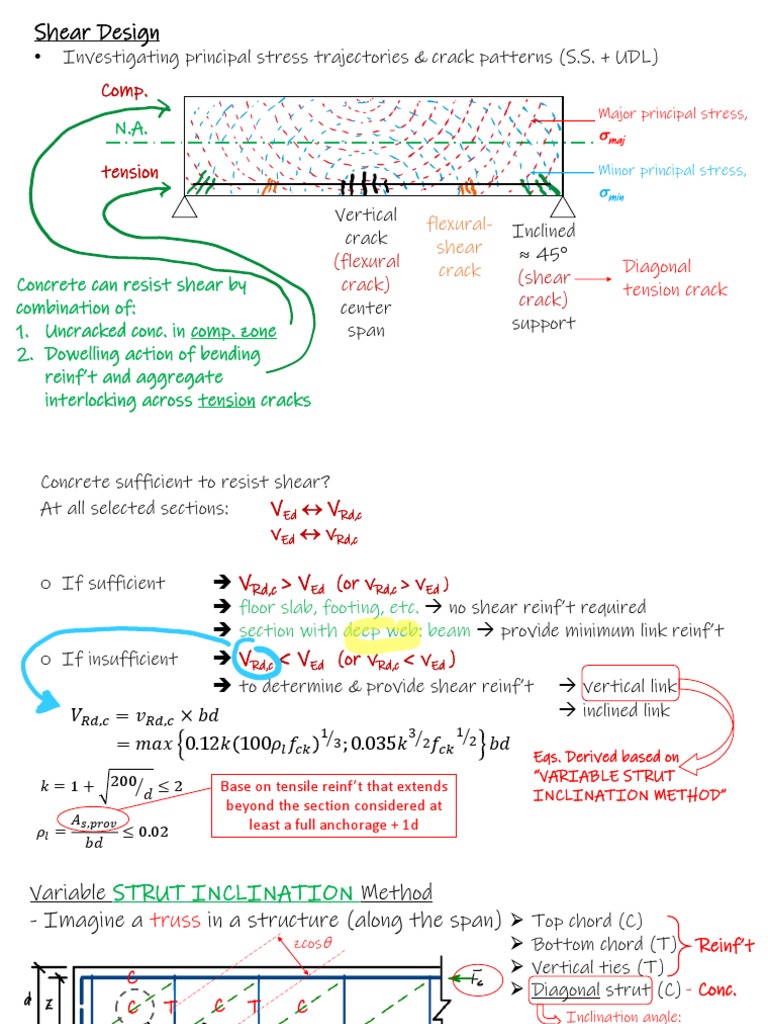 Shear Design
• Investigating principal stress trajectories & crack patterns (S.S. + UDL)
Comp.
N.A.
tension
Major principal stress,
σmaj
Minor principal stress,
σmin
Vertical
crack
(flexural
crack)
center
span
flexural-
shear
crack
Inclined
≈ 45°
(shear
crack)
support
Diagonal
tension crack
Concrete can resist shear by
combination of:
1. Uncracked conc. in comp. zone
2. Dowelling action of bending
reinf't and aggregate
interlocking across tension cracks
Concrete sufficient to resist shear?
At all selected sections: VEd ↔ VRd,c
vEd ↔ vRd,c
o If sufficient ➔ VRd,c > VEd (or vRd,c > vEd)
➔ floor slab, footing, etc. → no shear reinf't required
➔ section with deep web: beam → provide minimum link reinf't
o If insufficient ➔ VRd,c < VEd (or vRd,c < vEd)
➔ to determine & provide shear reinf't → vertical link
→ inclined link
VRd,c = vRd,c × bd
= max{0.12k(100ρl fck)^1/3; 0.035k^3/2 fck^1/2}bd
Eqs. Derived based on
"VARIABLE STRUT
INCLINATION METHOD"
k = 1 + √200/d ≤ 2
ρl = As,prov/bd ≤ 0.02
Base on tensile reinf't that extends
beyond the section considered at
least a full anchorage + 1d
Variable STRUT INCLINATION Method
- Imagine a truss in a structure (along the span)
➢ Top chord (C)
➢ Bottom chord (T)
➢ Vertical ties (T)
Reinf't
➢ Diagonal strut (C) - Conc.
Inclination angle:
zcosθ
C
Fc
d
z
C T C T C